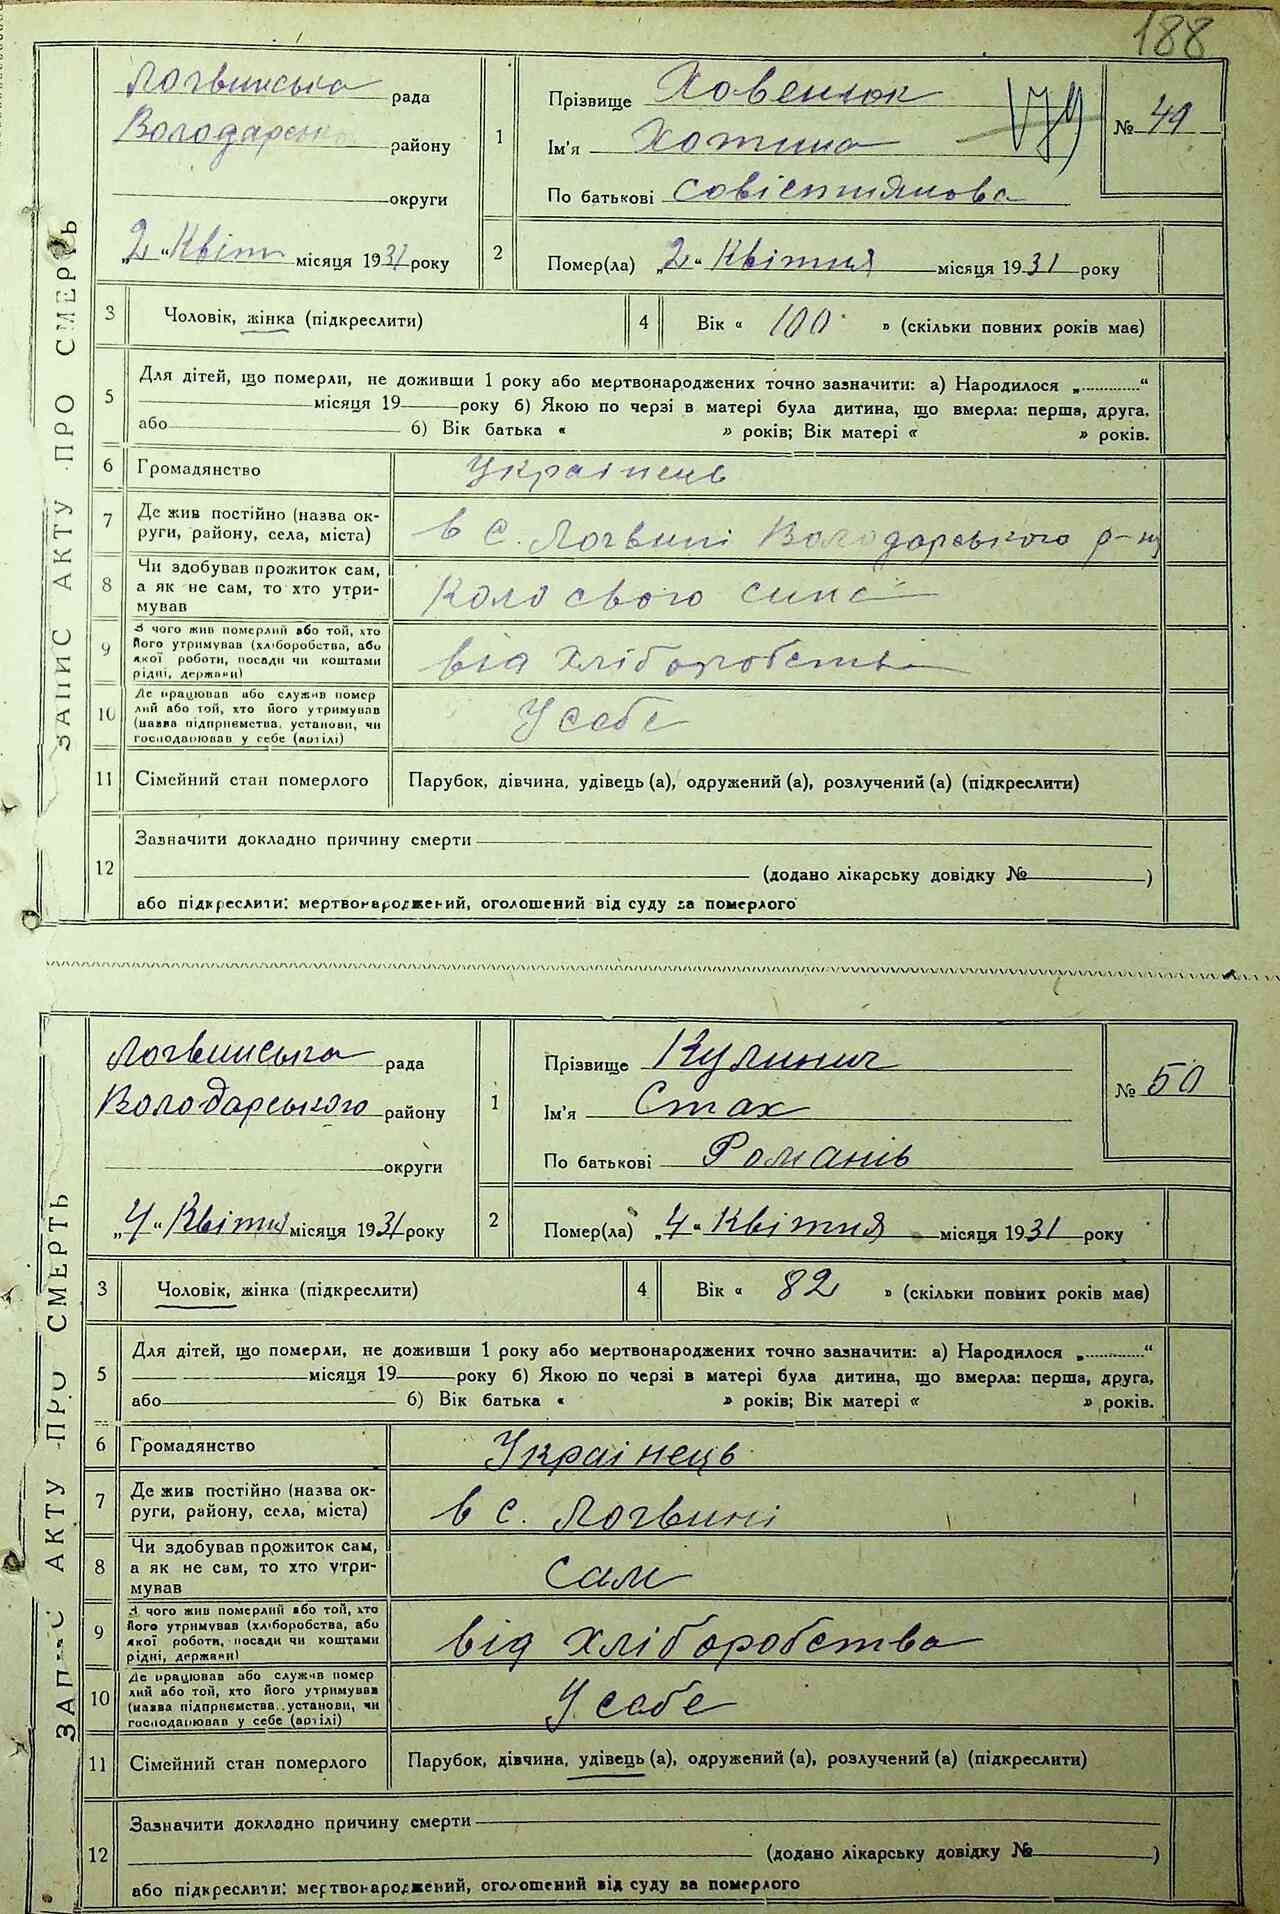 188
Логвинська рада
Володарського району
округи
„2“ Квіт місяця 1931 року
1
Прізвище Ховенлюк
Ім'я Хотина
По батькові Совіетиянова
№ 49
2
Помер(ла) „2“ Квітня місяця 1931 року
3
Чоловік, жінка (підкреслити)
4
Вік « 100 » (скільки повних років має)
5
Для дітей, що померли, не доживши 1 року або мертвонароджених точно зазначити: а) Народилося „.............“
місяця 19 року б) Якою по черзі в матері була дитина, що вмерла: перша, друга,
або б) Вік батька « » років; Вік матері « » років.
6
Громадянство Украінець
7
Де жив постійно (назва ок-
руги, району, села, міста)
в с. Логвині Володарського р-ну
8
Чи здобував прожиток сам,
а як не сам, то хто утри-
мував
Коло свого сина
9
З чого жив померлий або той, хто
його утримував (хліборобства, або
якої роботи, посади чи коштами
рідні, держави)
від хліборобства
10
Де працював або служив помер
лий або той, хто його утримував
(назва підприємства, установи, чи
господарював у себе (артілі)
У себе
11
Сімейний стан померлого
Парубок, дівчина, удівець (а), одружений (а), розлучений (а) (підкреслити)
12
Зазначити докладно причину смерти
(додано лікарську довідку № )
або підкреслити: мертвонароджений, оголошений від суду за померлого
ЗАПИС АКТУ ПРО СМЕРТЬ
Логвинська рада
Володарського району
округи
„4“ Квітня місяця 1931 року
1
Прізвище Кулинич
Ім'я Стах
По батькові Романів
№ 50
2
Помер(ла) „4“ Квітня місяця 1931 року
3
Чоловік, жінка (підкреслити)
4
Вік « 82 » (скільки повних років має)
5
Для дітей, що померли, не доживши 1 року або мертвонароджених точно зазначити: а) Народилося „.............“
місяця 19 року б) Якою по черзі в матері була дитина, що вмерла: перша, друга,
або б) Вік батька « » років; Вік матері « » років.
6
Громадянство Украінець
7
Де жив постійно (назва ок-
руги, району, села, міста)
в с. Логвині
8
Чи здобував прожиток сам,
а як не сам, то хто утри-
мував
Сам
9
З чого жив померлий або той, хто
його утримував (хліборобства, або
якої роботи, посади чи коштами
рідні, держави)
від хліборобства
10
Де працював або служив помер
лий або той, хто його утримував
(назва підприємства, установи, чи
господарював у себе (артілі)
У себе
11
Сімейний стан померлого
Парубок, дівчина, удівець (а), одружений (а), розлучений (а) (підкреслити)
12
Зазначити докладно причину смерти
(додано лікарську довідку № )
або підкреслити: мертвонароджений, оголошений від суду за померлого
ЗАПИС АКТУ ПРО СМЕРТЬ